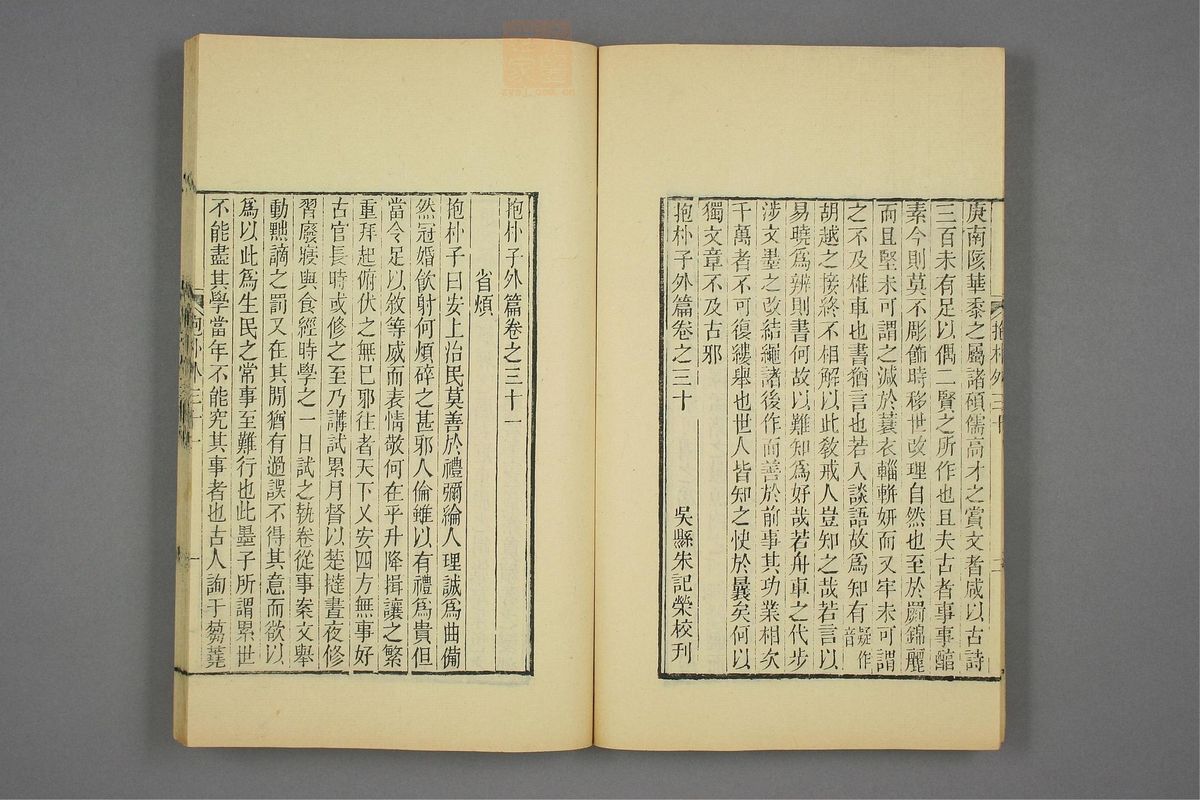 庚南陔華黍之屬諸碩儒高才之賞文者咸以古詩
三百未有足以偶二賢之所作也且夫古者事事醕
素今則莫不彫飾時移世改理自然也至於罽錦麗
而且堅未可謂之減於蓑衣輜軿妍而又牢未可謂
之不及椎車也書猶言也若入談語故爲知有疑作音
胡越之接終不相解以此教戒人豈知之哉若言以
易曉爲辨則書何故以難知爲好哉若舟車之代步
涉文墨之改結繩諸後作而善於前事其功業相次
千萬者不可復縷舉也世人皆知之快於曩矣何以
獨文章不及古邪
抱朴子外篇卷之三十
吳縣朱記榮校刊
抱朴外三十
抱朴子外篇卷之三十一
省煩
抱朴子曰安上治民莫善於禮彌綸人理誠爲曲備
然冠婚飲射何煩碎之甚邪人倫雖以有禮爲貴但
當令足以敘等威而表情敬何在乎升降揖讓之繁
重拜起俯伏之無已邪往者天下乂安四方無事好
古官長時或修之至乃講試累月督以楚撻晝夜修
習廢寢與食經時學之一日試之執卷從事案文舉
動黜謫之罰又在其閒猶有過誤不得其意而欲以
爲以此爲生民之常事至難行也此墨子所謂累世
不能盡其學當年不能究其事者也古人詢于蒭蕘
抱朴外三十一
一